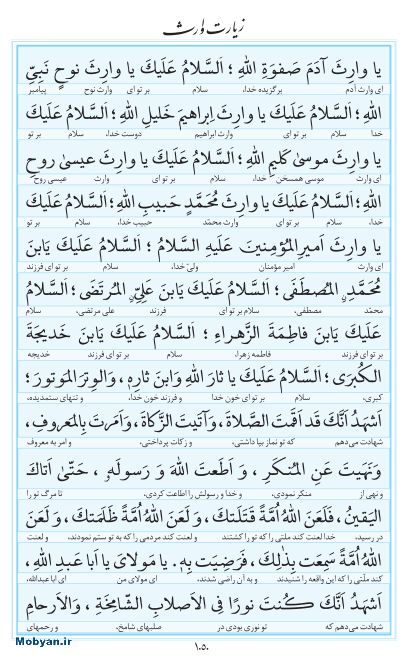 زیارت وارث
یا وارِثَ آدَمَ صَفوَةِ اللهِ ؛ اَلسَّلامُ عَلَیكَ یا وارِثَ نوحٍ نَبِیِّ
ای وارث آدم برگزیده خدا، سلام بر تو ای وارث نوح پیامبر
اللهِ ؛ اَلسَّلامُ عَلَیكَ یا وارِثَ اِبراهیمَ خَلیلِ اللهِ ؛ اَلسَّلامُ عَلَیكَ
خدا سلام بر تو ای وارث ابراهیم دوست خدا، سلام بر تو
یا وارِثَ موسیٰ کَلیمِ اللهِ ؛ اَلسَّلامُ عَلَیكَ یا وارِثَ عیسیٰ روحِ
ای وارث موسی همسخن خدا، سلام بر تو ای وارث عیسی روح
اللهِ ؛ اَلسَّلامُ عَلَیكَ یا وارِثَ مُحَمَّدٍ حَبیبِ اللهِ ؛ اَلسَّلامُ عَلَیكَ
خدا، سلام بر تو ای وارث محمّد حبیب خدا، سلام بر تو
یا وارِثَ اَمیرِالمُؤمِنینَ عَلَیهِ السَّلامُ ؛ اَلسَّلامُ عَلَیكَ یَابنَ
ای وارث امیر مؤمنان ولیّ خدا، سلام بر تو ای فرزند
مُحَمَّدٍ المُصطَفَی ؛ اَلسَّلامُ عَلَیكَ یَابنَ عَلِیٍّ المُرتَضَی ؛ اَلسَّلامُ
محمّد مصطفی، سلام بر تو ای فرزند علی مرتضی، سلام
عَلَیكَ یَابنَ فاطِمَةَ الزَّهراءِ ؛ اَلسَّلامُ عَلَیكَ یَابنَ خَدیجَةَ
بر تو ای فرزند فاطمه زهرا، سلام بر تو ای فرزند خدیجه
الکُبرَی ؛ اَلسَّلامُ عَلَیكَ یا ثارَ اللهِ وَابنَ ثارِهِ ، وَالوِترَ المَوتورَ ؛
کبری، سلام بر تو ای خون خدا و فرزند خون خدا، و تنهای ستمدیده،
اَشهَدُ اَنَّكَ قَد اَقَمتَ الصَّلاةَ، وَآتَیتَ الزَّکاةَ، وَاَمَرتَ بِالمَعروفِ،
شهادت می‌دهم که تو نماز بپا داشتی، و زکات پرداختی، و امر به معروف
وَنَهَیتَ عَنِ المُنکَرِ ، وَ اَطَعتَ اللهَ وَ رَسولَهُ ، حَتّیٰ اَتاكَ
و نهی از منکر نمودی، و خدا و رسولش را اطاعت کردی، تا مرگ تو را
الیَقینُ، فَلَعَنَ اللهُ اُمَّةً قَتَلَتكَ، وَ لَعَنَ اللهُ اُمَّةً ظَلَمَتكَ، وَ لَعَنَ
در رسید، خدا لعنت کند ملتی را که تو را کشتند و لعنت کند مردمی را که به تو ستم نمودند، و لعنت
اللهُ اُمَّةً سَمِعَت بِذٰلِكَ، فَرَضِیَت بِهِ. یا مَولایَ یا اَبا عَبدِ اللهِ ،
کند ملّتی را که این واقعه را شنیدند و به آن راضی شدند. ای مولای من ای ابا عبدالله،
اَشهَدُ اَنَّكَ کُنتَ نورًا فِی الاَصلابِ الشّامِخَةِ ، وَالاَرحامِ
شهادت می‌دهم که تو نوری بودی در صلبهای شامخ، و رحمهای
۱۰۵۰
Mobyan.ir